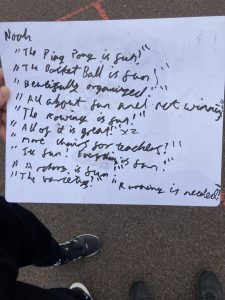 Noah
"The Ping Pong is fun!"
"The Basket Ball is fun!"
"Beautifully organized!"
"All about fun and not winning"
"The Rowing is fun!"
"All of it is great!" x2
"More chairs for teachers!"
"Its fun! Everything is fun!"
"is fun!"
"The varieties!" "Running is needed!"